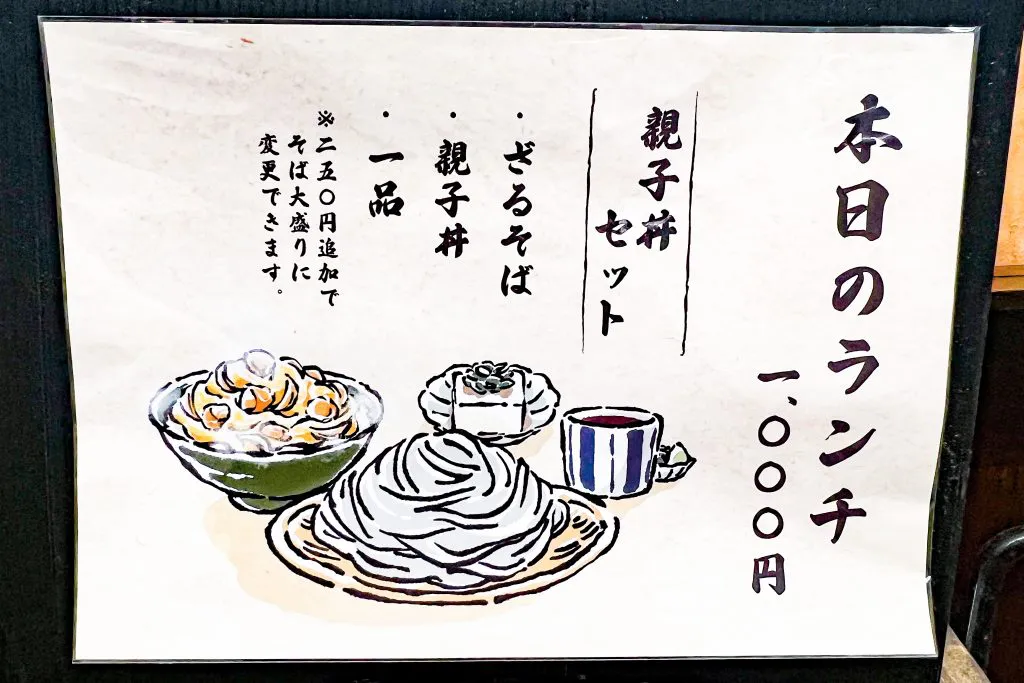 本日のランチ
一、〇〇〇円
親子丼
セット
・ざるそば
・親子丼
・一品
※二五〇円追加で
そば大盛りに
変更できます。